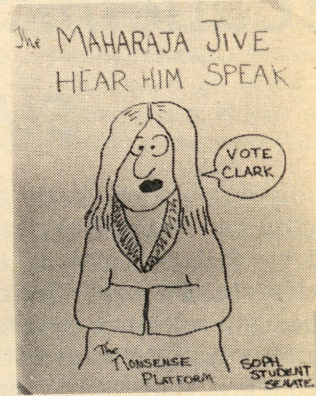 The MAHARAJA JIVE
HEAR HIM SPEAK
VOTE
CLARK
The
NONSENSE
PLATFORM
SOPH
STUDENT
SENATE